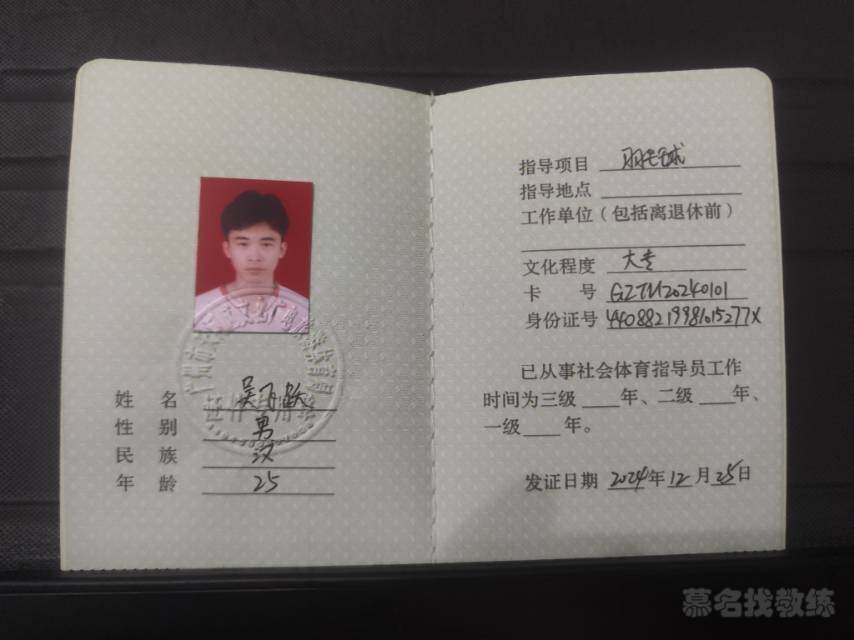 姓 名 吴飞跃
性 别 男
民 族 汉
年 龄 25
指导项目 羽毛球
指导地点
工作单位（包括离退休前）
文化程度 大专
卡 号 GZTM20240101
身份证号 44088219981015277X
已从事社会体育指导员工作
时间为三级 年、二级 年、
一级 年。
发证日期 2024年12月25日
慕名找教练